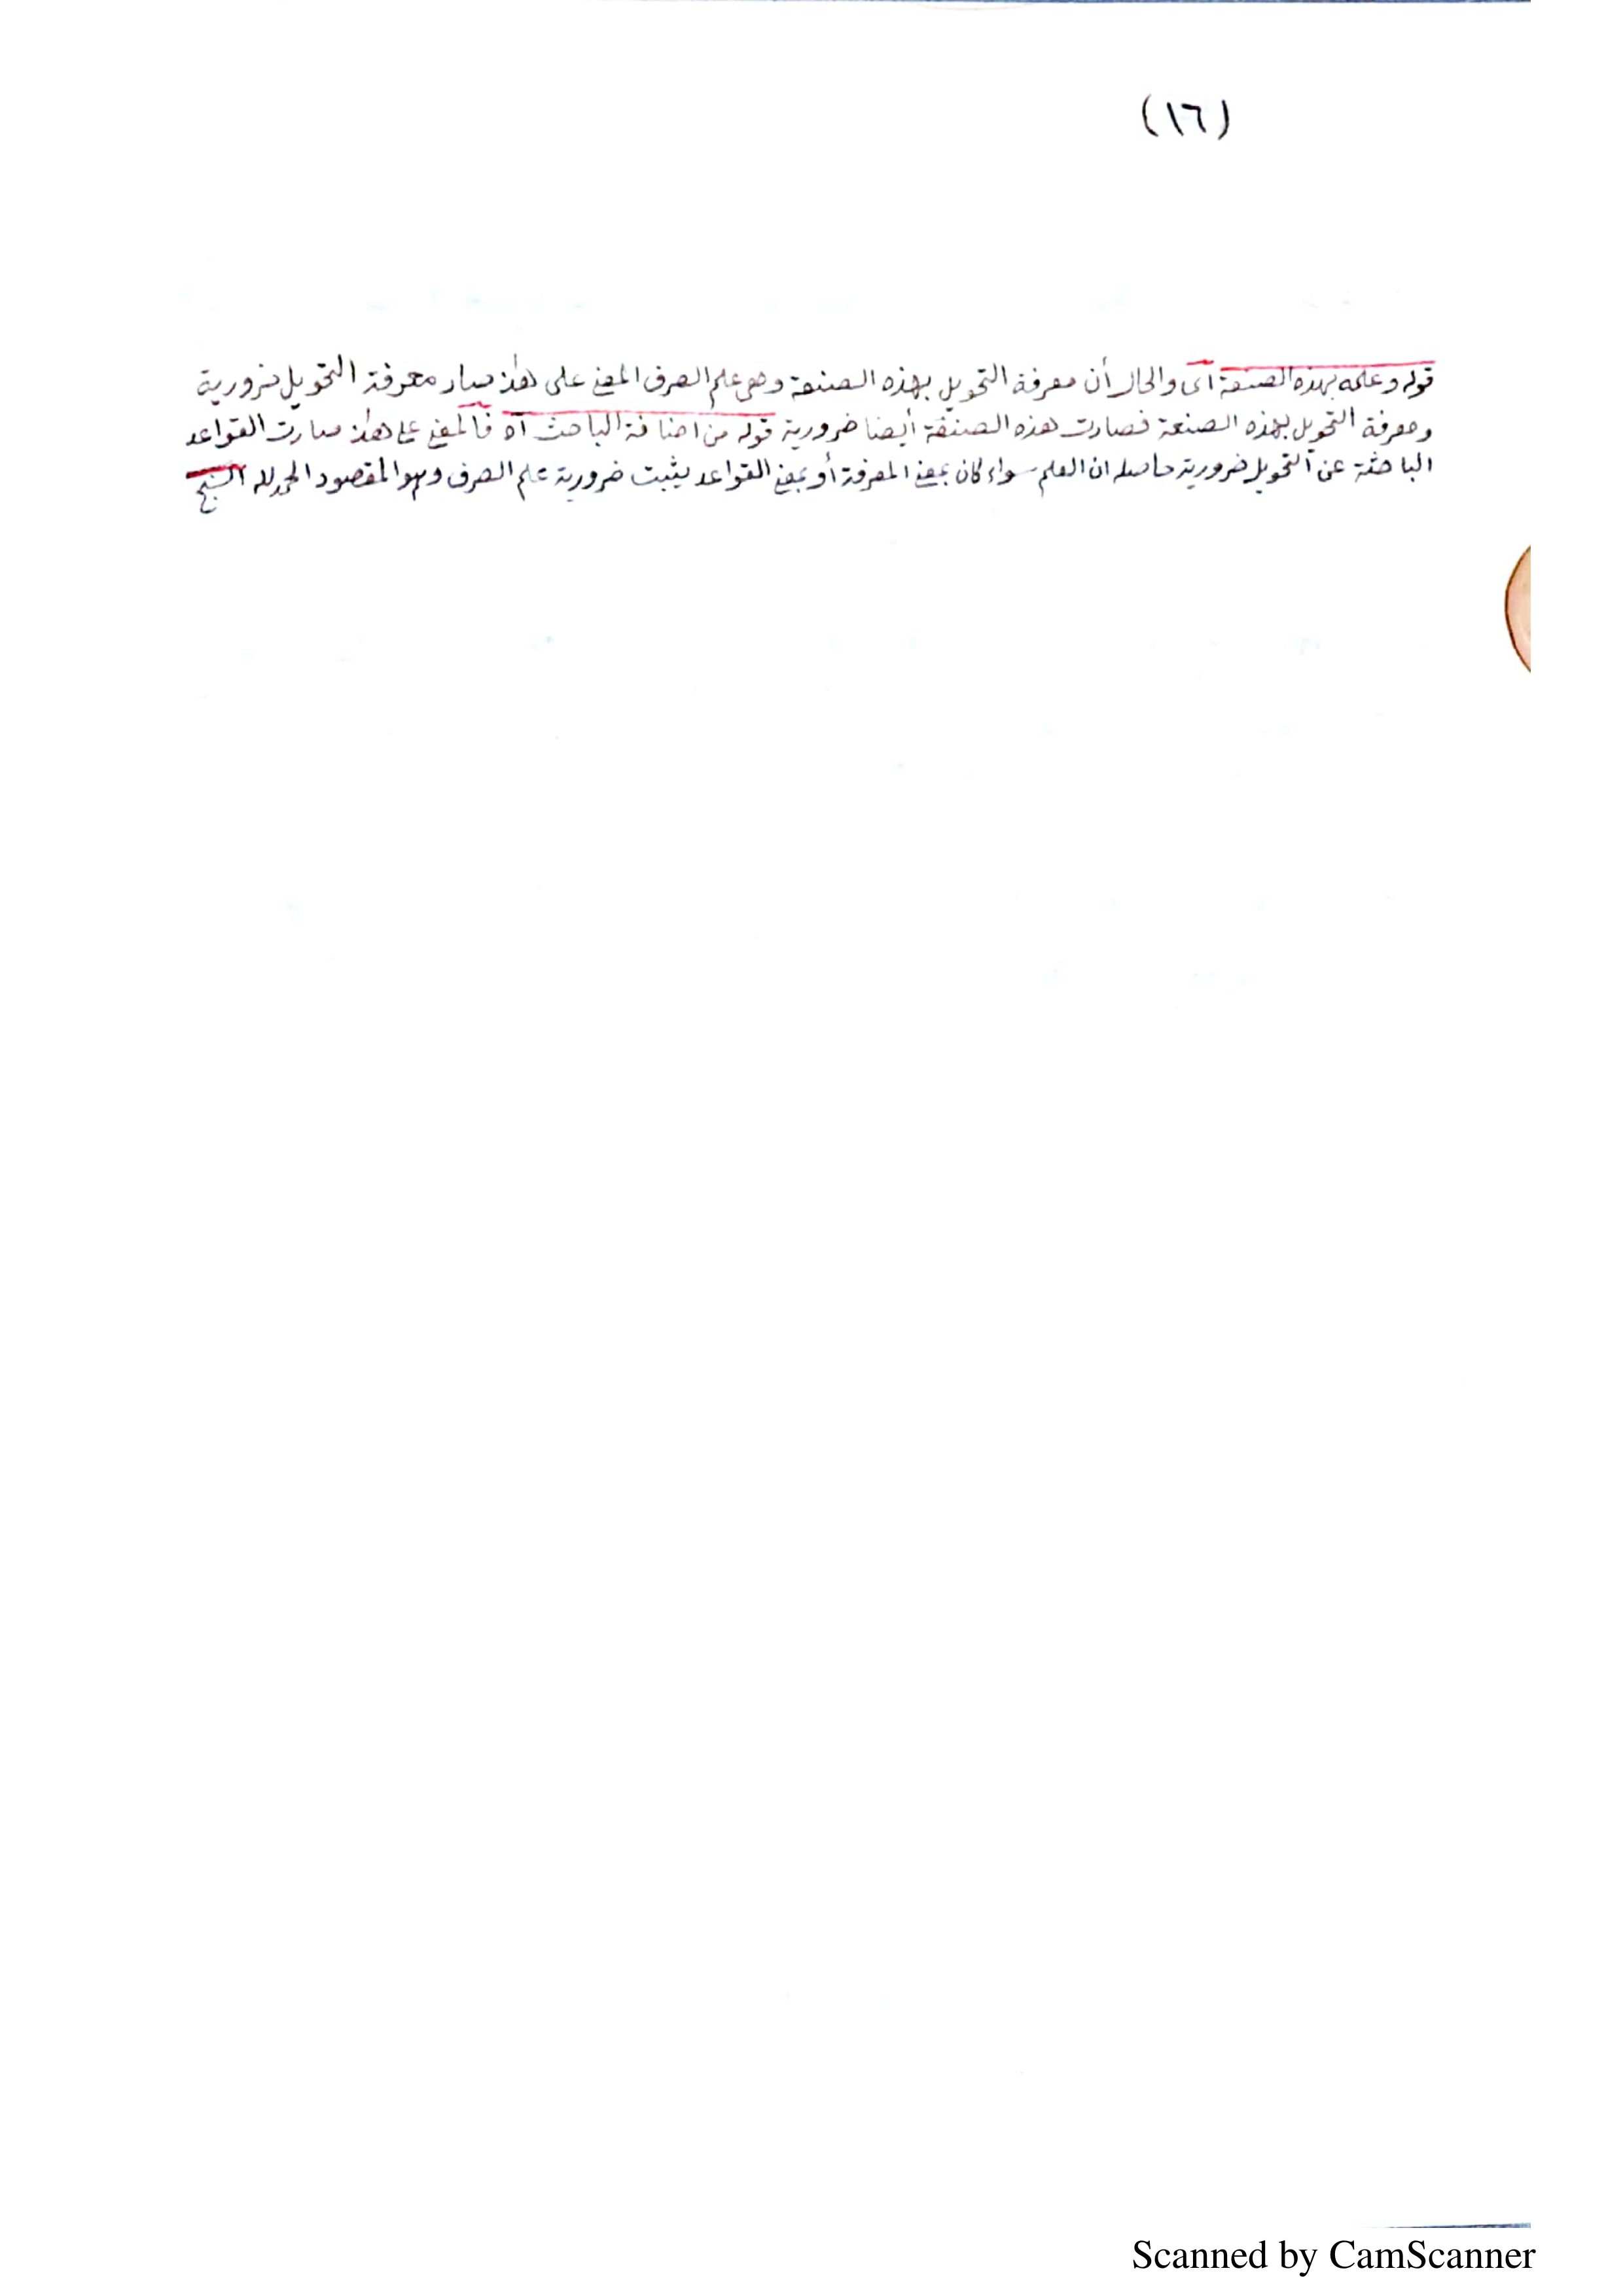 (١٦)
قوله وعلمه بهذه الصنعة اى والحال أن معرفة التحويل بهذه الصنعة وهى علم الصرف المعنى على هذا صار معرفة التحويل ضرورية
ومعرفة التحويل بهذه الصنعة فصارت هذه الصنعة أيضا ضرورية قوله من اضافة الباحث اه فالمعنى على هذا صارت القواعد
الباحثة عن التحويل ضرورية حاصله ان العلم سواء كان بمعنى المعرفة أو بمعنى القواعد يثبت ضرورية علم الصرف وهو المقصود الحمد لله
Scanned by CamScanner